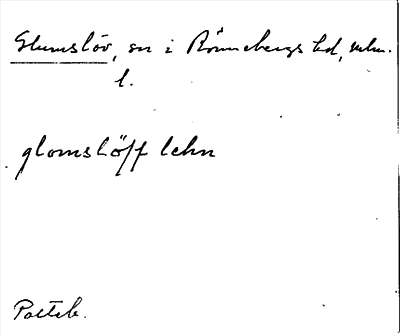 Glumslöv, sn i Rönnebergs hd, mlm.
l.
glomslöff lehn
Poststb.